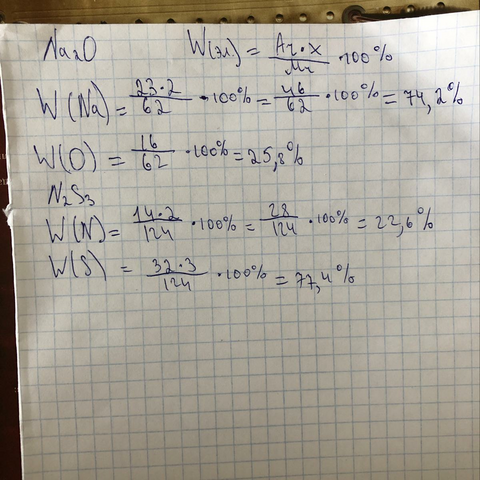 Na₂O W(эл) = Ar·x/Mr ·100%
W(Na) = 23·2/62 ·100% = 46/62 ·100% = 74,2%
W(O) = 16/62 ·100% = 25,8%
N₂S₃
W(N) = 14·2/124 ·100% = 28/124 ·100% = 22,6%
W(S) = 32·3/124 ·100% = 77,4%